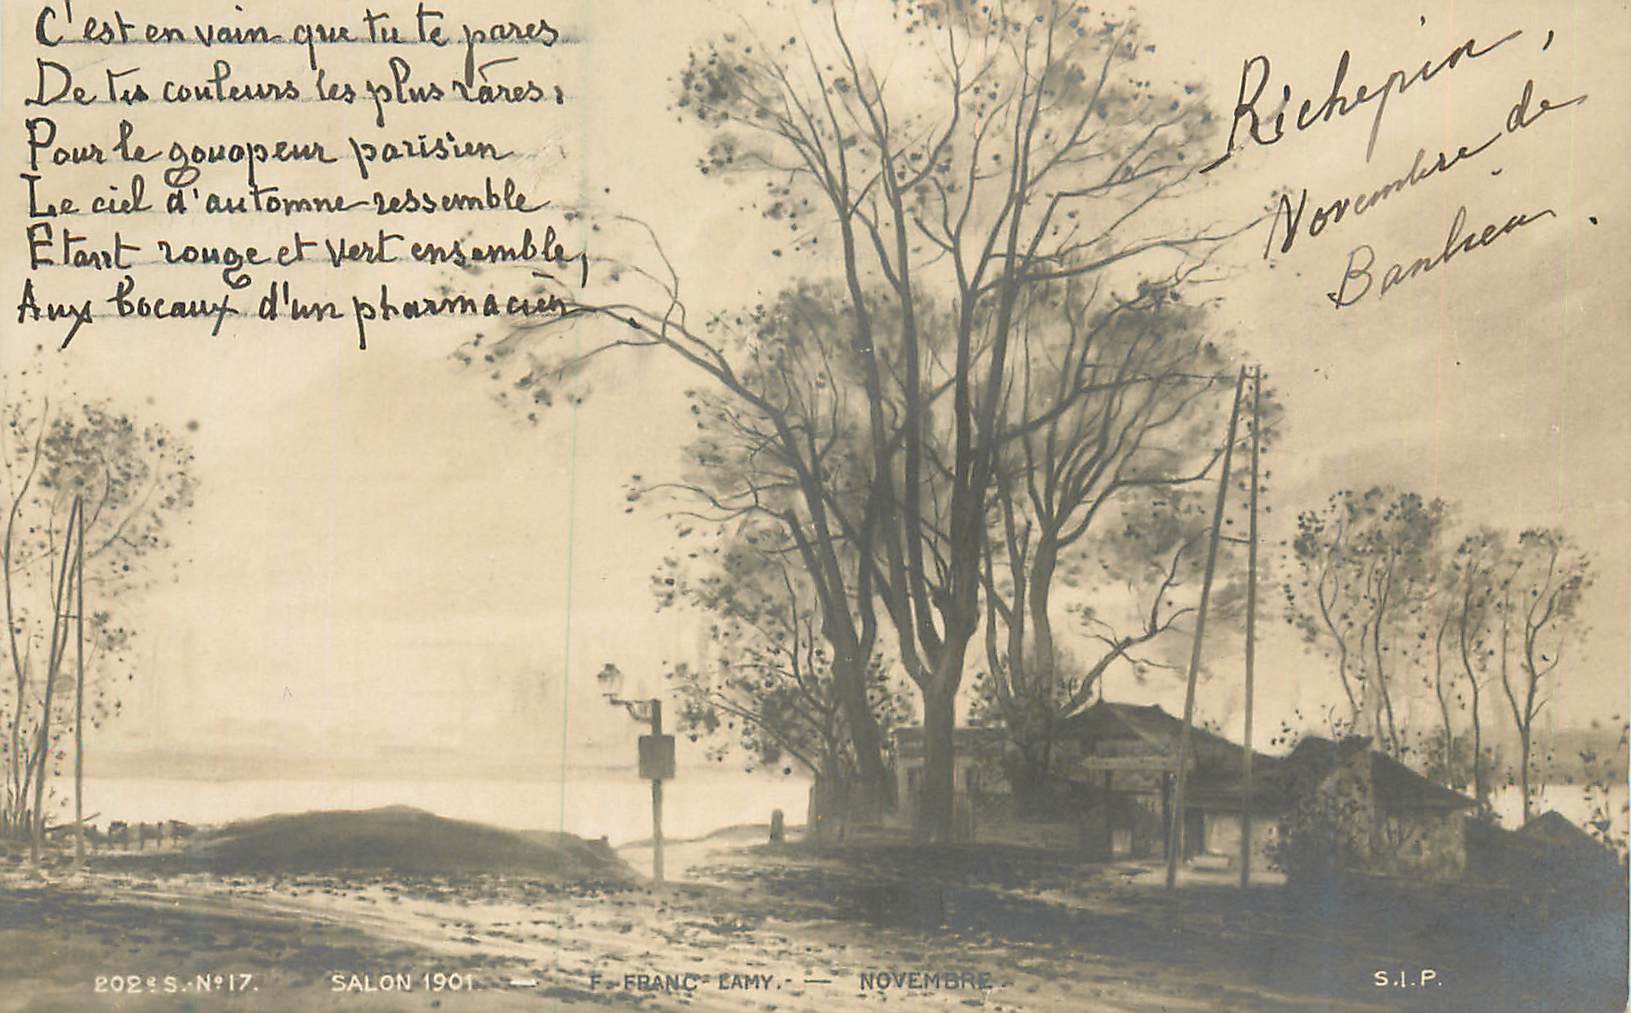 C'est en vain que tu te pares
De tes couleurs les plus rares,
Pour le gouapeur parisien
Le ciel d'automne ressemble
Etant rouge et vert ensemble,
Aux bocaux d'un pharmacien
Richepin,
Novembre de
Banlieu.
202e S.-No 17. SALON 1901. — F. FRANC-LAMY. — NOVEMBRE. S.I.P.